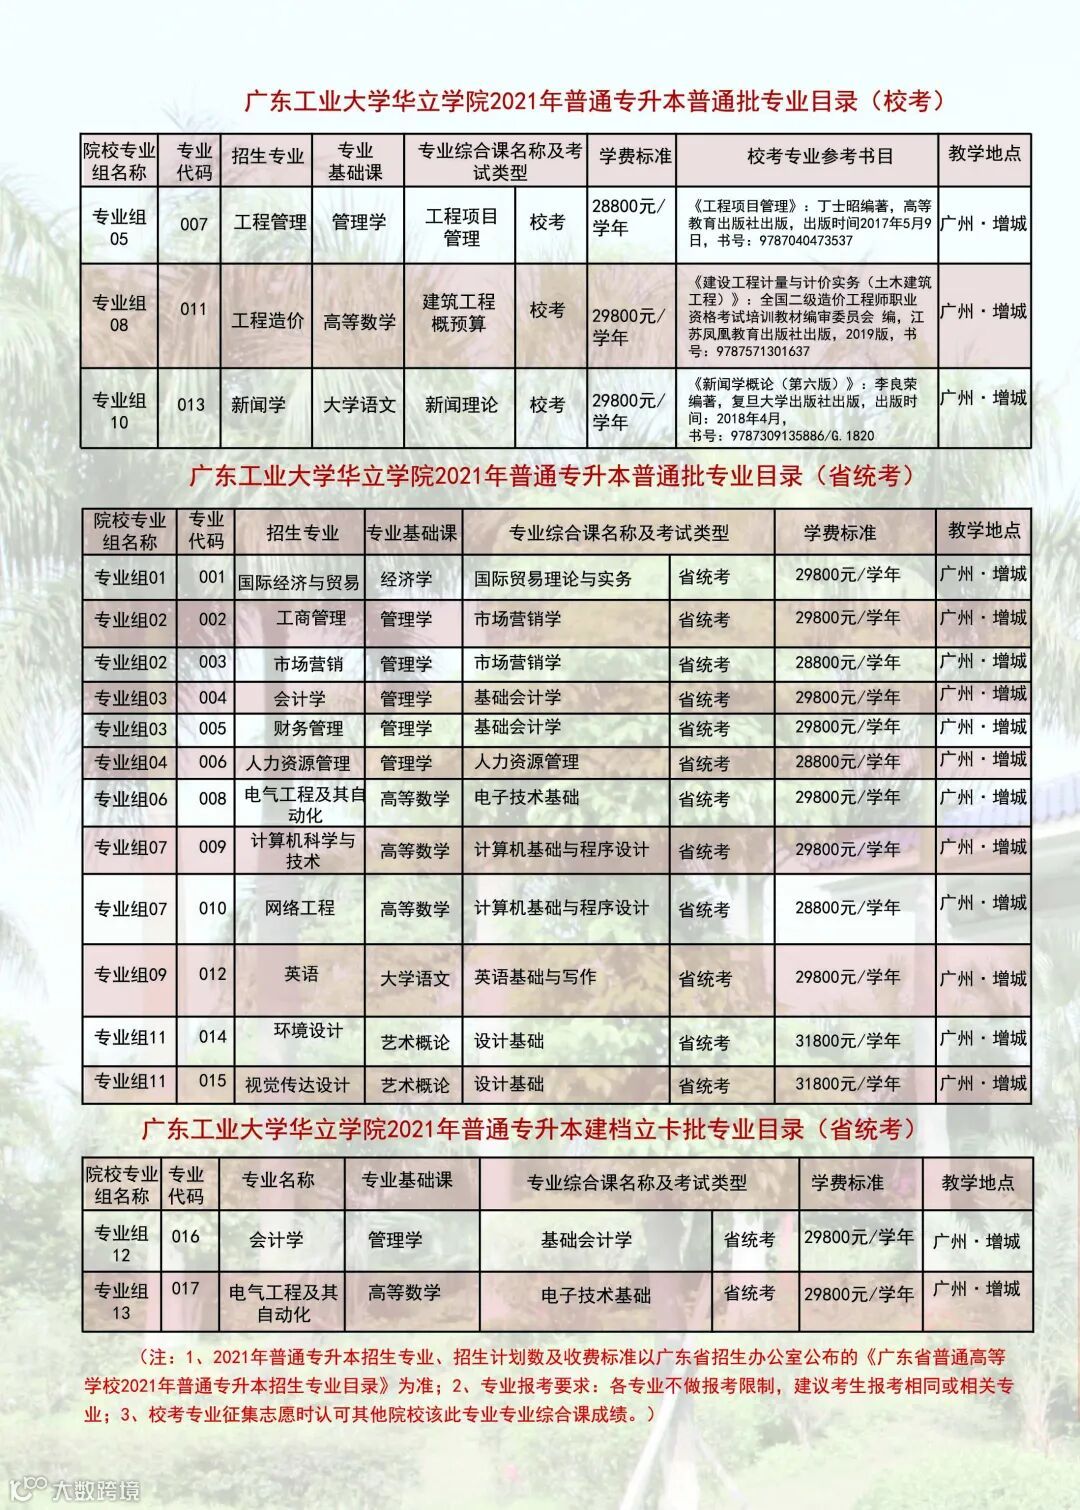 广东工业大学华立学院2021年普通专升本普通批专业目录（校考）
院校专业组名称 专业代码 招生专业 专业基础课 专业综合课名称及考试类型 学费标准 校考专业参考书目 教学地点
专业组05 007 工程管理 管理学 工程项目管理 校考 28800元/学年 《工程项目管理》：丁士昭编著，高等教育出版社出版，出版时间2017年5月9日，书号：9787040473537 广州·增城
专业组08 011 工程造价 高等数学 建筑工程概预算 校考 29800元/学年 《建设工程计量与计价实务（土木建筑工程）》：全国二级造价工程师职业资格考试培训教材编审委员会 编，江苏凤凰教育出版社出版，2019版，书号：9787571301637 广州·增城
专业组10 013 新闻学 大学语文 新闻理论 校考 29800元/学年 《新闻学概论（第六版）》：李良荣编著，复旦大学出版社出版，出版时间：2018年4月，书号：9787309135886/G.1820 广州·增城
广东工业大学华立学院2021年普通专升本普通批专业目录（省统考）
院校专业组名称 专业代码 招生专业 专业基础课 专业综合课名称及考试类型 学费标准 教学地点
专业组01 001 国际经济与贸易 经济学 国际贸易理论与实务 省统考 29800元/学年 广州·增城
专业组02 002 工商管理 管理学 市场营销学 省统考 29800元/学年 广州·增城
专业组02 003 市场营销 管理学 市场营销学 省统考 28800元/学年 广州·增城
专业组03 004 会计学 管理学 基础会计学 省统考 29800元/学年 广州·增城
专业组03 005 财务管理 管理学 基础会计学 省统考 29800元/学年 广州·增城
专业组04 006 人力资源管理 管理学 人力资源管理 省统考 28800元/学年 广州·增城
专业组06 008 电气工程及其自动化 高等数学 电子技术基础 省统考 29800元/学年 广州·增城
专业组07 009 计算机科学与技术 高等数学 计算机基础与程序设计 省统考 29800元/学年 广州·增城
专业组07 010 网络工程 高等数学 计算机基础与程序设计 省统考 28800元/学年 广州·增城
专业组09 012 英语 大学语文 英语基础与写作 省统考 29800元/学年 广州·增城
专业组11 014 环境设计 艺术概论 设计基础 省统考 31800元/学年 广州·增城
专业组11 015 视觉传达设计 艺术概论 设计基础 省统考 31800元/学年 广州·增城
广东工业大学华立学院2021年普通专升本建档立卡批专业目录（省统考）
院校专业组名称 专业代码 专业名称 专业基础课 专业综合课名称及考试类型 学费标准 教学地点
专业组12 016 会计学 管理学 基础会计学 省统考 29800元/学年 广州·增城
专业组13 017 电气工程及其自动化 高等数学 电子技术基础 省统考 29800元/学年 广州·增城
（注：1、2021年普通专升本招生专业、招生计划数及收费标准以广东省招生办公室公布的《广东省普通高等
学校2021年普通专升本招生专业目录》为准；2、专业报考要求：各专业不做报考限制，建议考生报考相同或相关专
业；3、校考专业征集志愿时认可其他院校该此专业专业综合课成绩。）
大数跨境